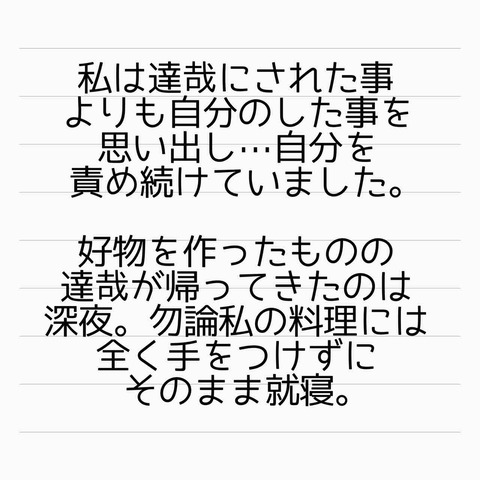 私は達哉にされた事
よりも自分のした事を
思い出し…自分を
責め続けていました。
好物を作ったものの
達哉が帰ってきたのは
深夜。勿論私の料理には
全く手をつけずに
そのまま就寝。